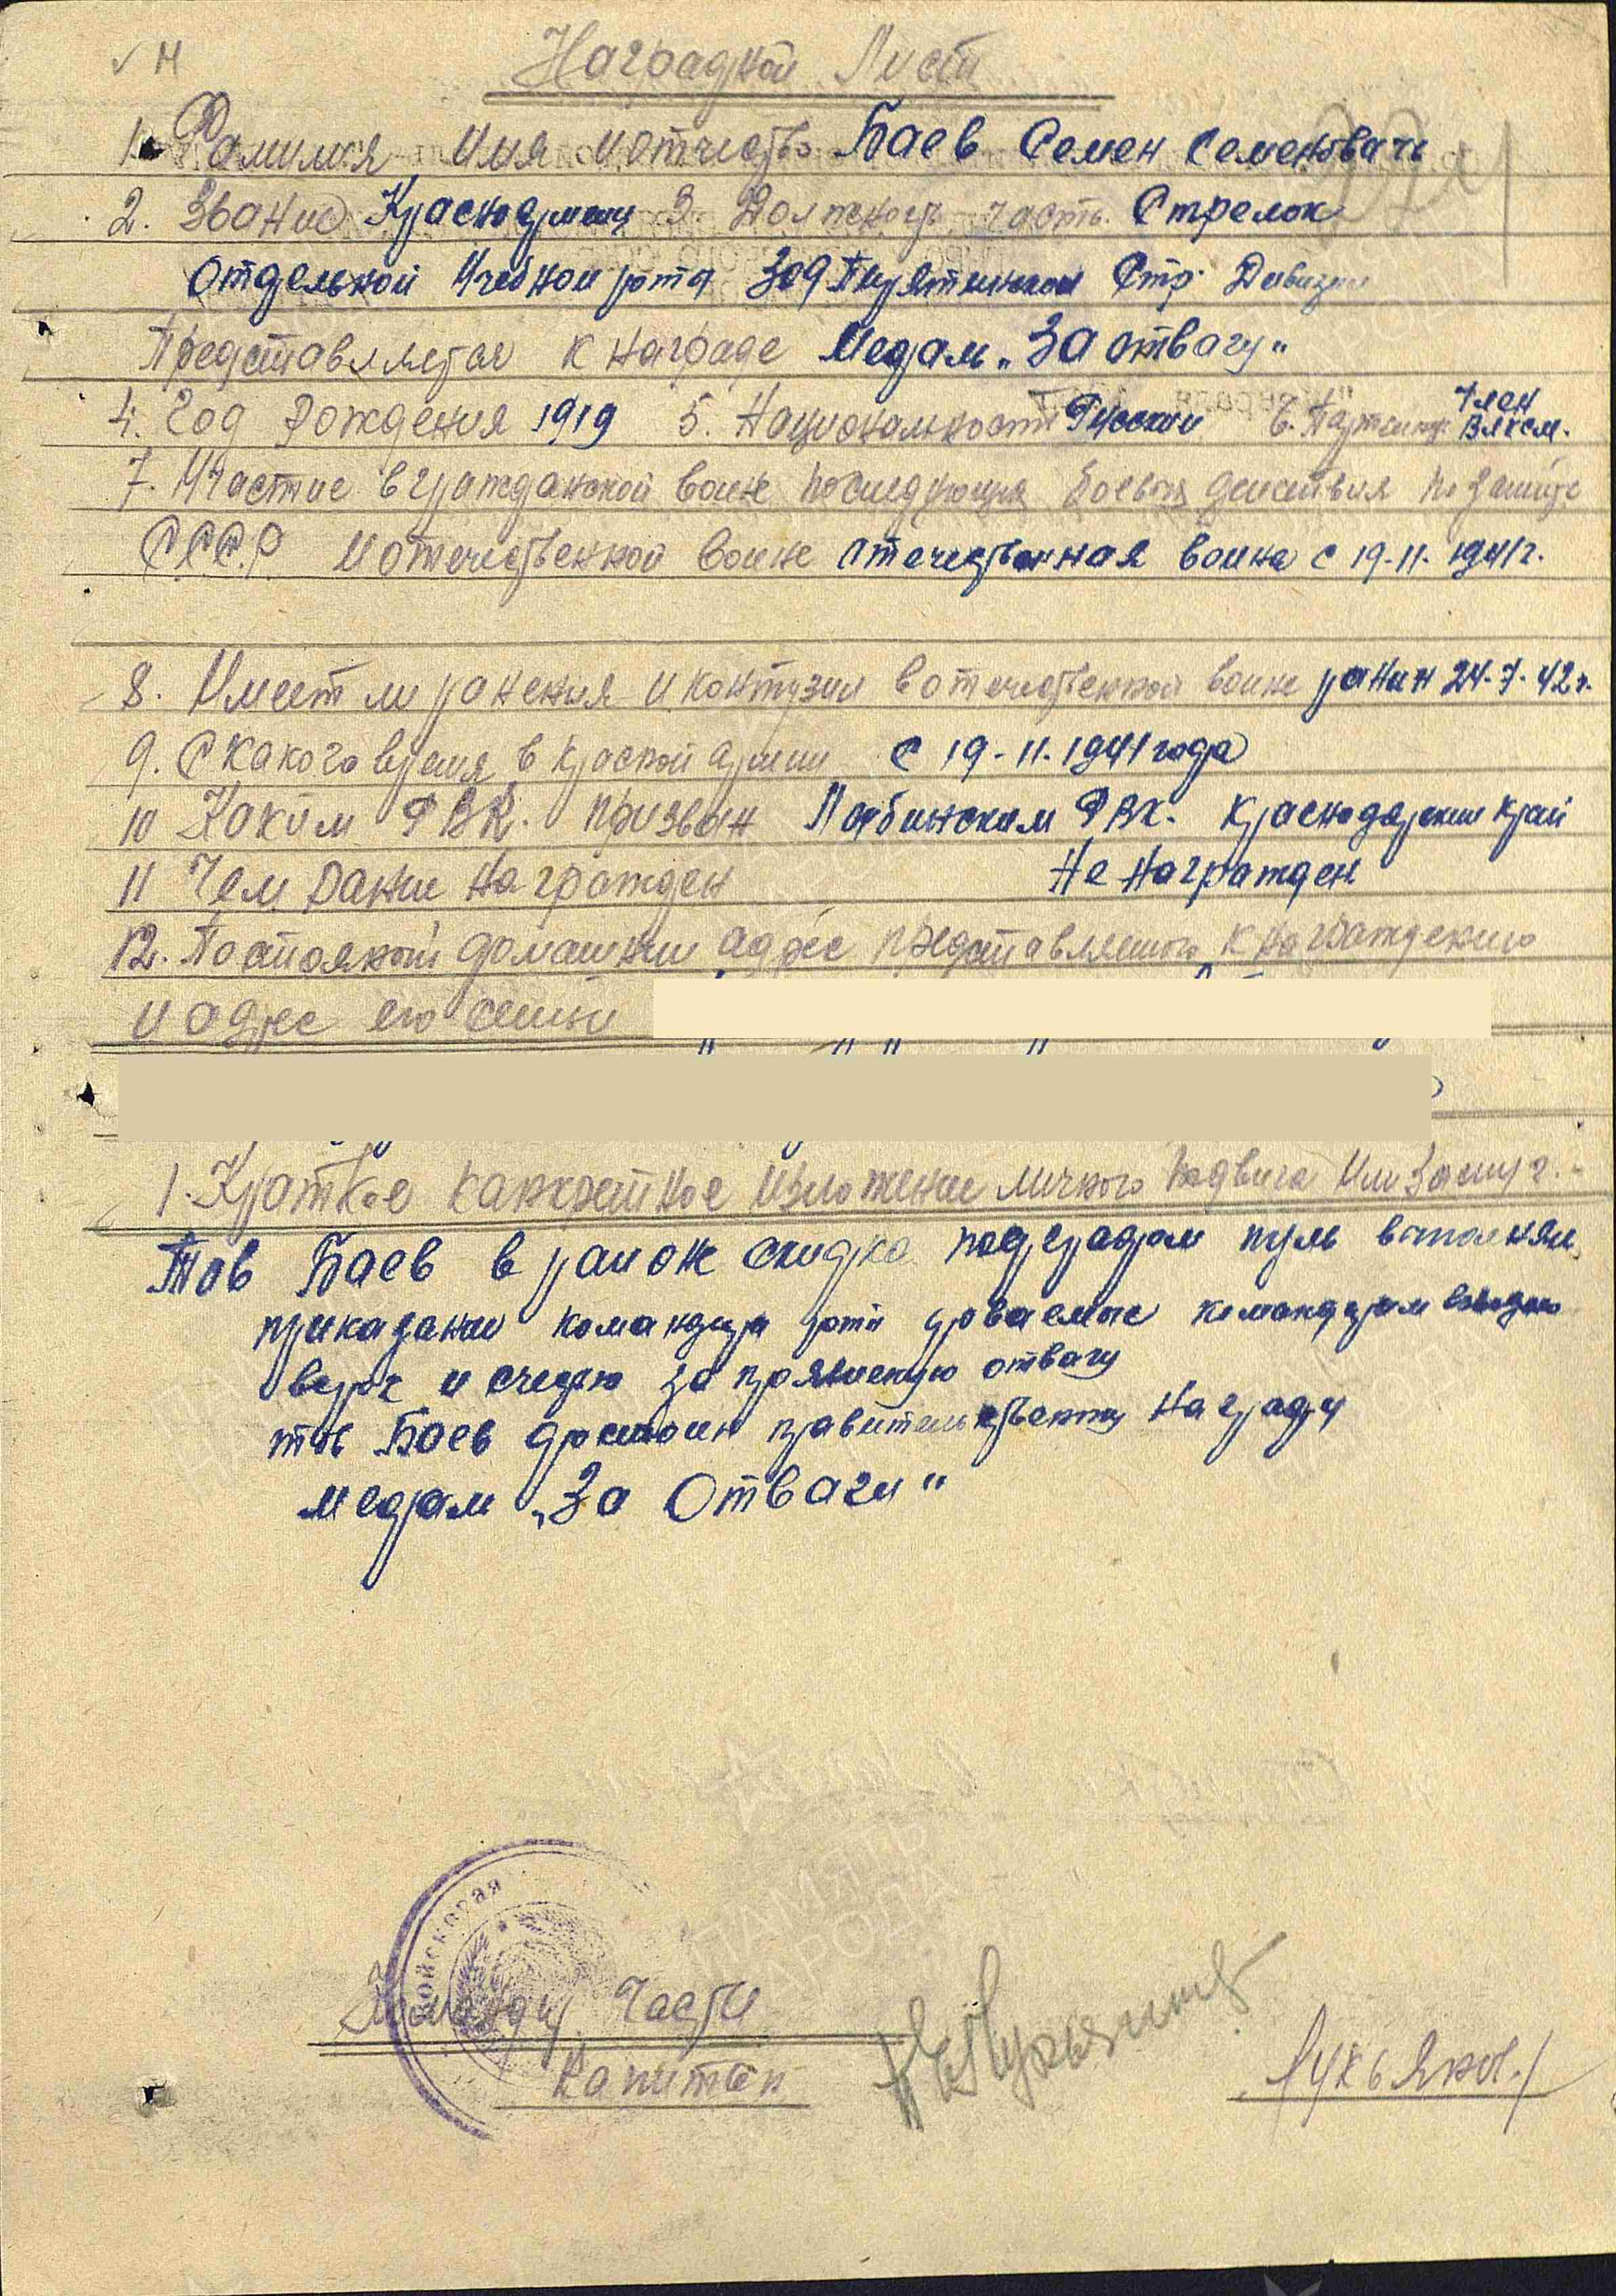 Наградной Лист
1. Фамилия Имя и отчество Баев Семен Семеновачь
2. Звание Красноармеец 3. Должность часть. Стрелок
отдельной Учебной рота 309 Пирятинской Стр. Дивизии
Представляется к награде Медам „За отвагу"
4. Год рождения 1919 5. Национальность Русский 6. Партийн. Член
Влксм.
7. Участие в гражданской воине последующия боевыя действия по защите
С.С.С.Р. и отечественной воине Отечественная воина с 19-11-1941г.
8. Имеет ли ранения и контузии в отечественной воине ранин 24-7-42г.
9. С какого время в красной армии с 19-11.1941 года
10 Каким РВК. призван Лабинским РВК. Краснодарский край
11 Чем ранее награжден Не награжден
12. Постоянный домашнии адрес представляемого к награждению
и адрес его семьи
1. Краткое канкретное изложение личного подвига или заслуг.-
Тов Баев в район под градом пуль выполнял
приказание командира роты командирам
за отвагу
тов Баев достоин правительственну награду
медам „За Отваги"
войсковая
Командир Части
Капитан
Лукьянов
/Лукьянов./
ПАМЯТЬ
НАРОДА